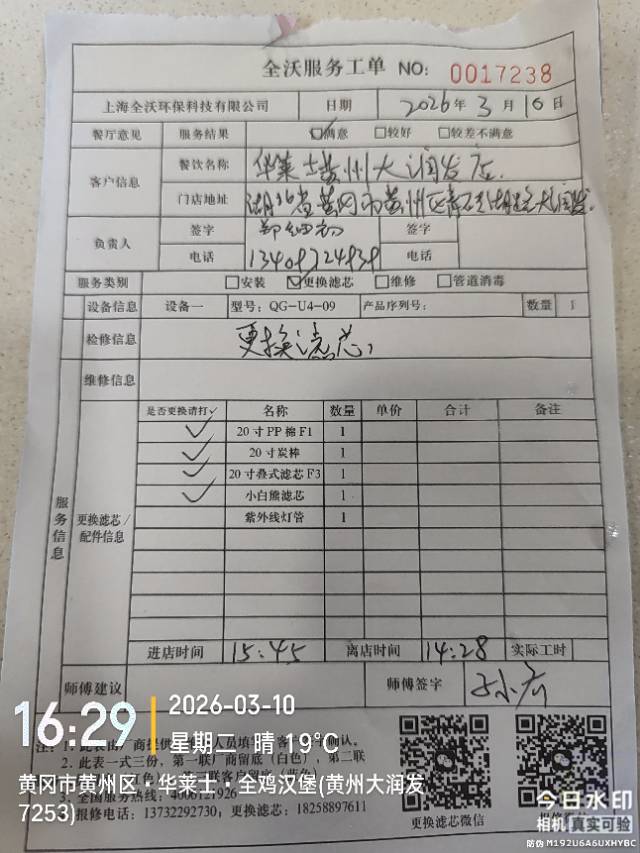 全沃服务工单 NO: 0017238
上海全沃环保科技有限公司 日期 2026年3月10日
餐厅意见 服务结果 ☑满意 □较好 □较差不满意
客户信息 餐饮名称 华莱士黄州大润发店
门店地址 湖北省黄冈市黄州区 大润发
负责人 签字 签字
电话 13409724939 电话
服务类别 □安装 ☑更换滤芯 □维修 □管道消毒
设备信息 设备一 型号: QG-U4-09 产品序列号: 数量 1
检修信息 更换滤芯
维修信息
服务信息
更换滤芯/配件信息
是否更换请打✓ 名称 数量 单价 合计 备注
✓ 20寸PP棉F1 1
✓ 20寸炭棒 1
✓ 20寸叠式滤芯F3 1
✓ 小白熊滤芯 1
紫外线灯管 1
进店时间 15:45 离店时间 14:28 实际工时
师傅建议 师傅签字
注: 1. 此表由厂商提供 人员填 客户 确认。
2. 此表一式三份，第一联厂商留底（白色），第二联
客户留底（蓝色）
3. 全国服务热线: 4006121926
报修电话: 13732292730，更换滤芯: 18258897611
更换滤芯微信
16:29 2026-03-10
星期二 晴 19℃
黄冈市黄州区·华莱士·全鸡汉堡(黄州大润发
7253)
今日水印
相机 真实可验
防伪 M192U6A6UXHYBC